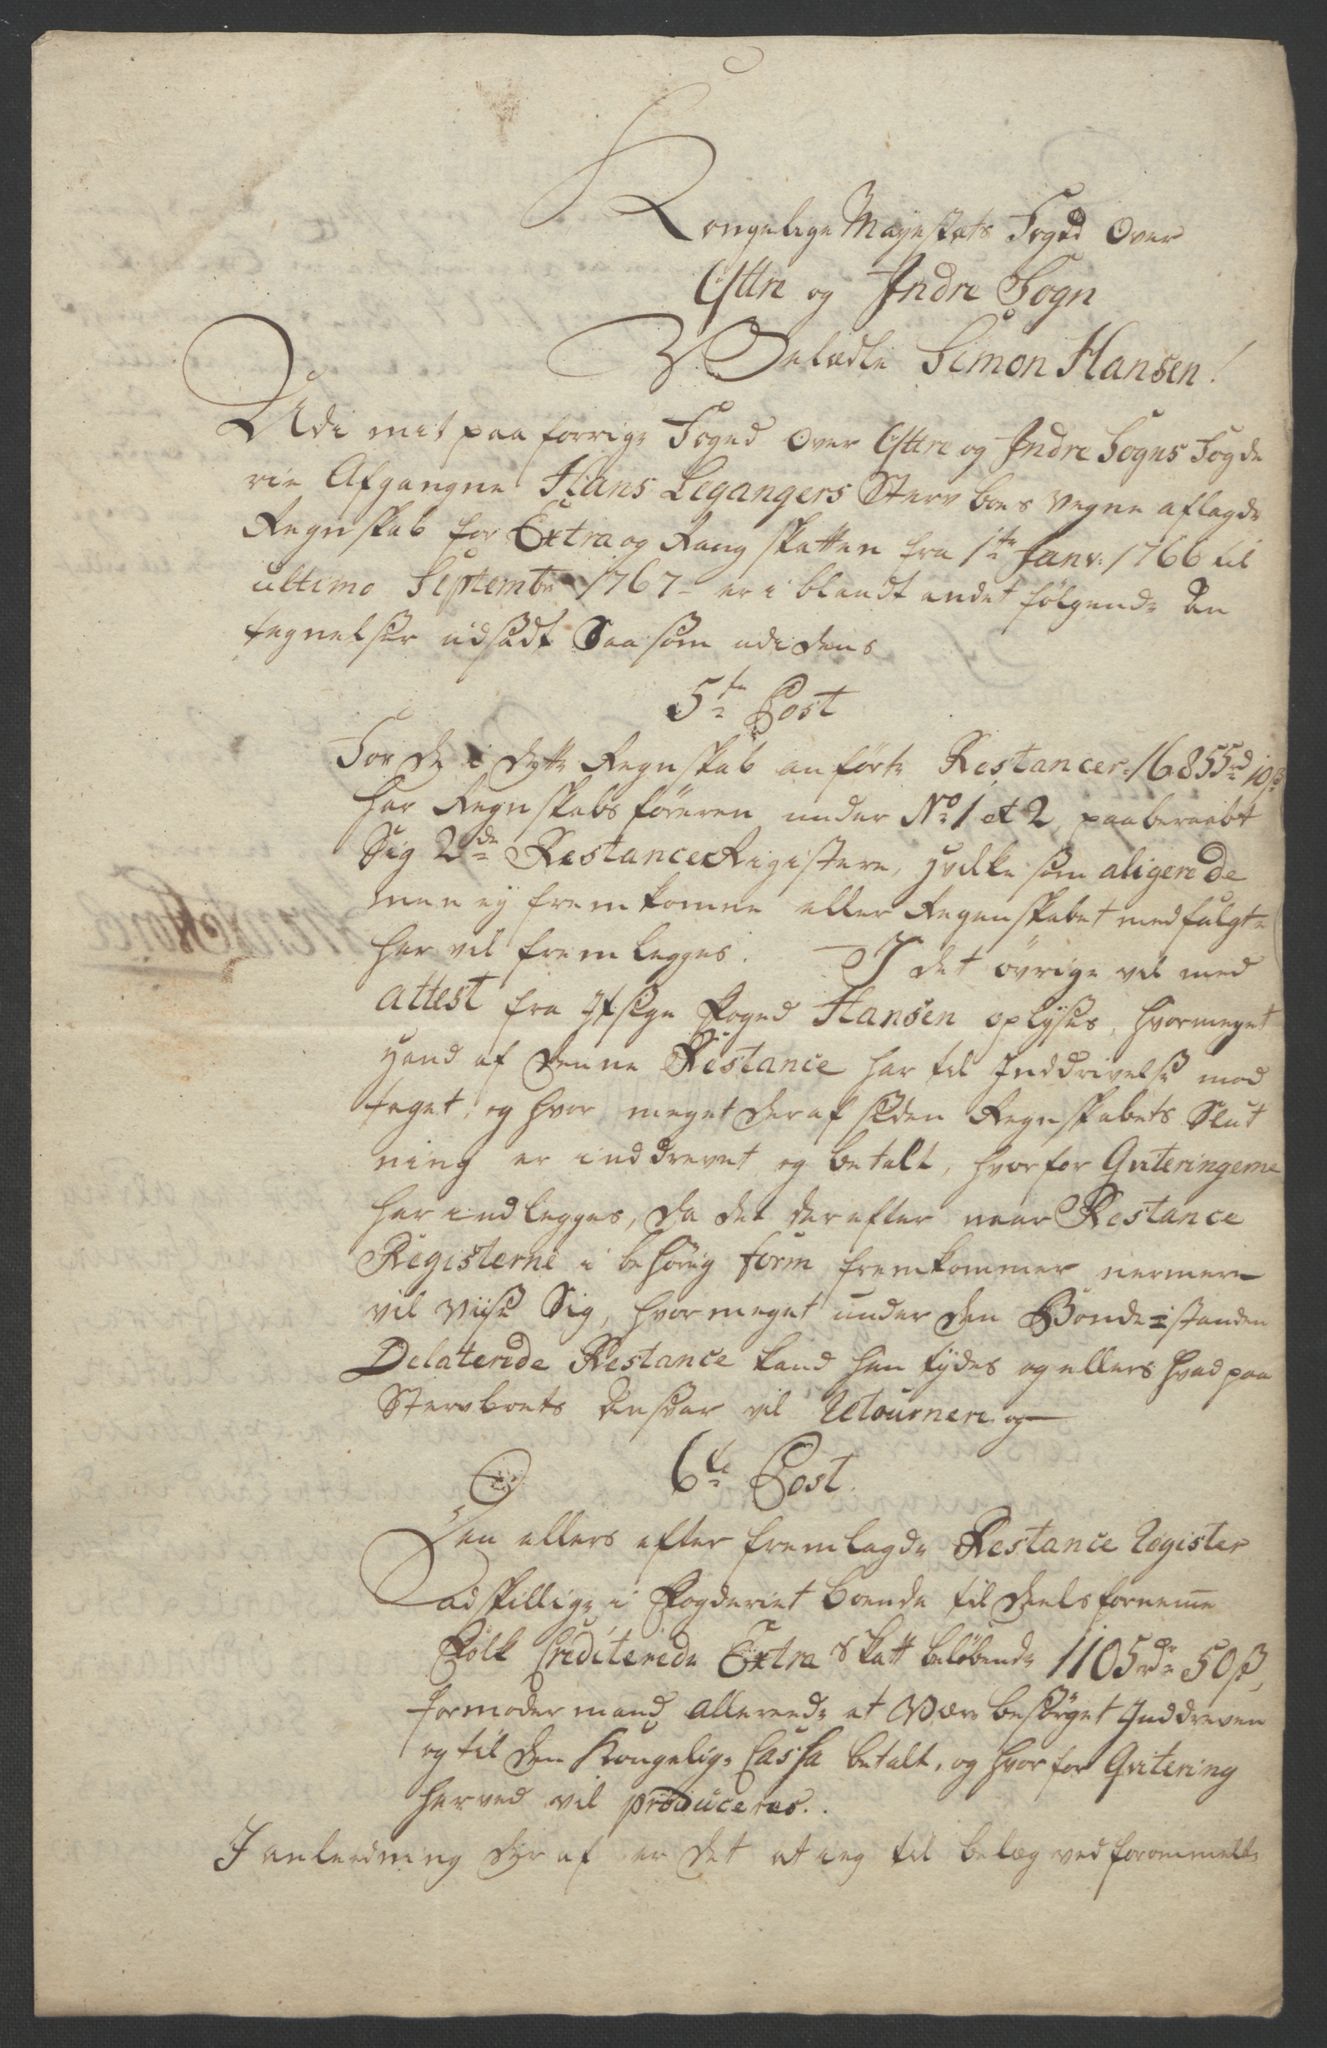 Kongelige Mayestæts Foged Over
Yttre og Indre Sogn
Velædle Simon Hansen!
Udi mit paa forrige Foged Over Yttre og Indre Sogns Fogde
rie Afgangne Hans Legangers Sterv boes vegne aflagde
Regnskab for Extra og Rang skatten fra 1te Janv: 1766 til
ultimo Septembr 1767 er i blandt andet følgende An
tegnelser udsadt Saasom udi dens
5te Post
For de i dette Regnskab anførte Restancer 16855rd 10ß
har Regnskabsføreren under No 1 et 2 paaberaabt
Sig 2de Restance Registere, hvilke som aligerede
men ey fremkomne eller Regenskabet medfulgte
her vil fremlegges. I det øvrige vil med
attest fra itzige Foged Hansen oplyses, hvormeget
hand af denne Restance har til Inddrivelse mod
taget, og hvor meget deraf siden Regnskabets Slut
ning er inddrevet og betalt, hvorfor Qviteringerne
her indlegges, da det derefter naar Restance
Registerne i behørig form fremkommer nermere
vil viise Sig, hvor meget under den Bonde standen
Delaterede Restance kand hen tydes og ellers hvad paa
Stervboets Ansvar vil Retournere og
6te Post
Den ellers efter fremlagde Restance Register
adskillige i Fogderiet boende til deels fornemme
Folk Crediterede Extra Skatt beløbende 1105rdr 50ß,
formoder mand allereede at Være besørget Inddreven
og til den Kongelige Cassa betalt, og hvor for Qvitering
herved vil produceres.
I anledning der af er det at ieg til belæg ved forommeldte